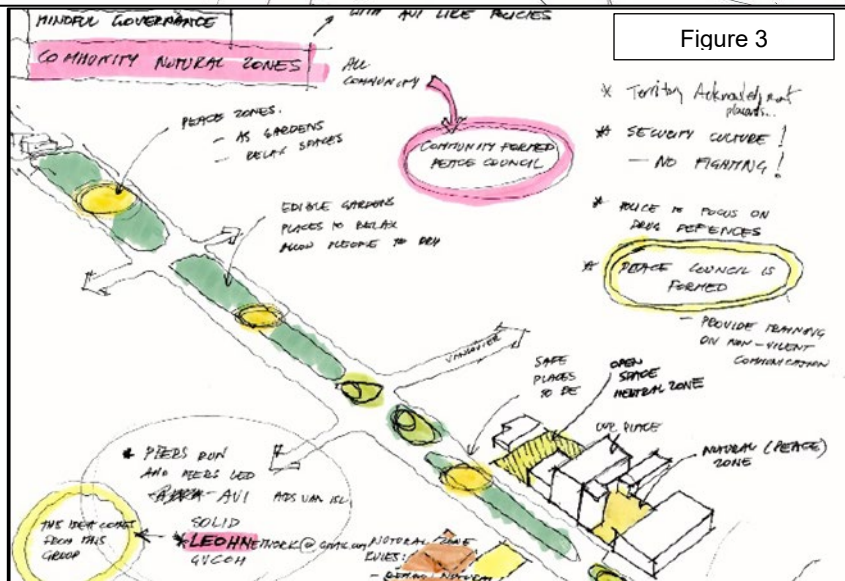 WITH AVI LIKE POLICIES
MINDFUL GOVERNANCE
Figure 3
COMMUNITY NATURAL ZONES
ALL
COMMUNITY
COMMUNITY FORMED
PEACE COUNCIL
PEACE ZONES.
— AS GARDENS
— RELAX SPACES
EDIBLE GARDENS
PLACES TO RELAX
ALLOW PEOPLE TO
* Territory Acknowledgment
* SECURITY CULTURE!
— NO FIGHTING!
* POLICE TO FOCUS ON
DRUG
* PEACE COUNCIL IS
FORMED
— PROVIDE TRAINING
ON NON-VILENT
COMMUNICATION
VANCOUVER
SAFE
PLACES
TO BE
OPEN
SPACE
NEUTRAL ZONE
OUR PLACE
NATURAL (PEACE)
ZONE
* PEERS RUN
AND PEERS LED
AVI AIDS VAN ISL
SOLID
*LEOHNETWORK@GMAIL.COM
GVCOH
THIS IDEA COMES
FROM THIS
GROUP
NATURAL ZONE
RULES:
— REMAIN NATURAL